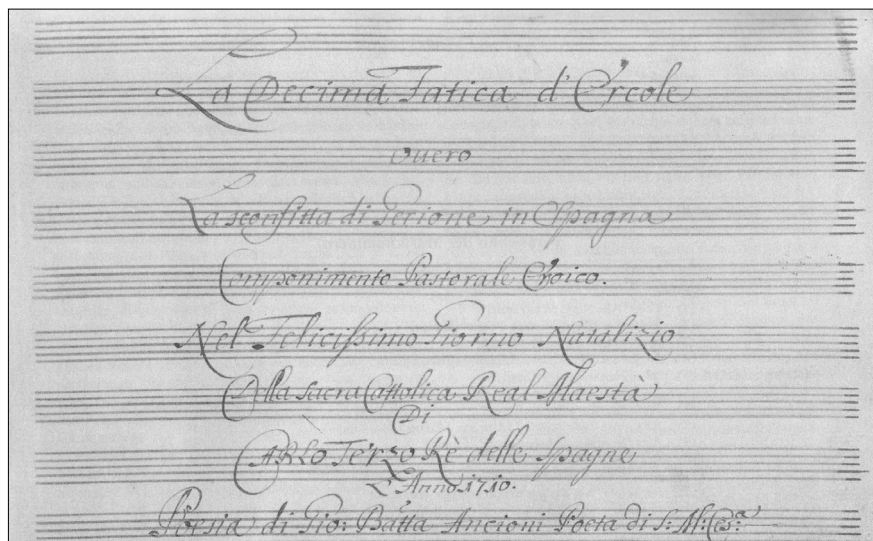 La Decima Fatica d'Ercole
overo
La sconfitta di Gerione in Spagna
Componimento Pastorale Eroico.
Nel Felicissimo Giorno Natalizio
Della sacra Cattolica Real Maestà
Di
CARLO Terzo Rè delle spagne
L'Anno 1710.
Poesia di Gio: Batta Ancioni Poeta di S: M: Ces:a